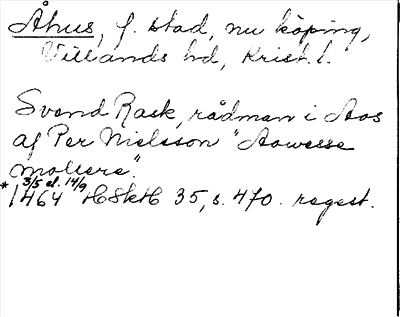 Åhus, f. stad, nu köping,
Villands hd, Krist. l.
Svend Rask, rådman i Aos
af Per Nielsson "Aowesse
mollere".
* 3/5 el. 14/9
1464 HSkH 35, s. 470. regest.